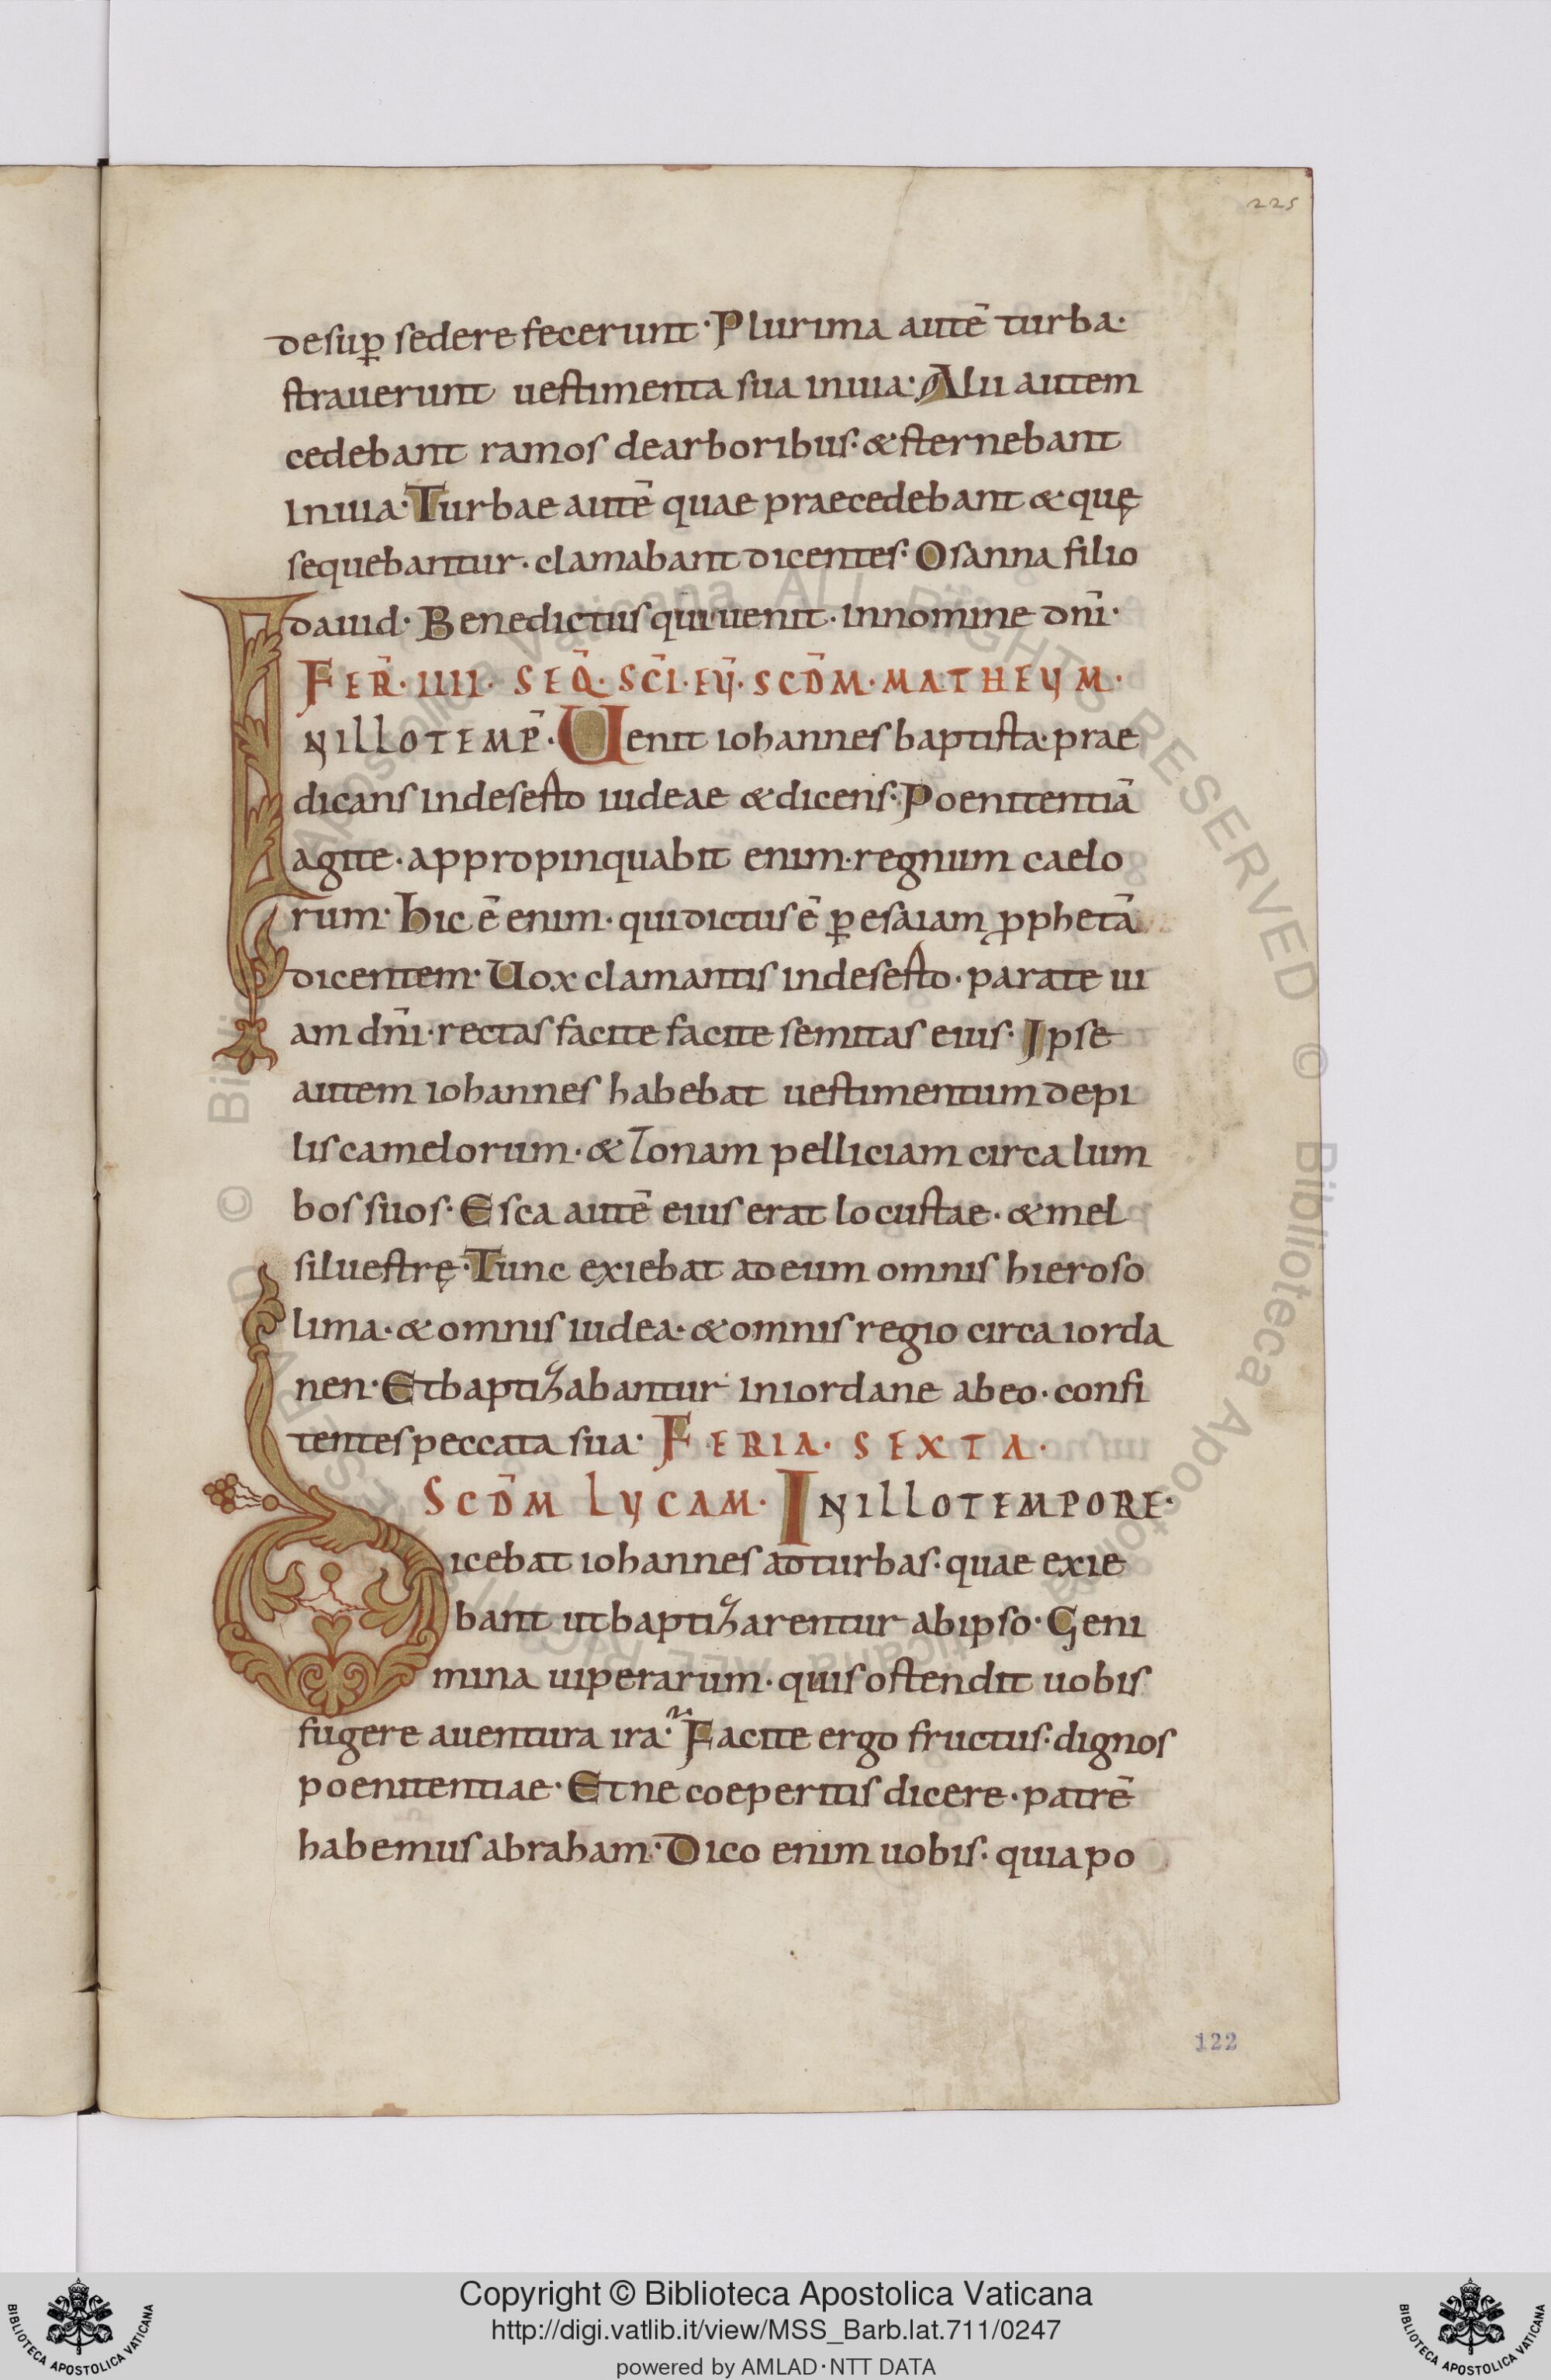 225
desuꝑ sedere fecerunt· Plurima autē turba·
strauerunt uestimenta sua inuia· Alii autem
cedebant ramos dearboribus· &sternebant
Inuia· Turbae autē quae praecedebant & quę
sequebantur· clamabant dicentes· Osanna filio
dauid· Benedictus qui uenit· Innomine dn̄i·
FER̄· IIII· SEQ̄· SC̄I· EỸ· SCD̄M· MATHEYM·
I NILLOTEMP̄· Uenit iohannes baptista· prae
dicans indeserto iudeae &dicens· Poenitentiā
agite· appropinquabit enim· regnum caelo
rum· Hic ē enim· quidictus ē ꝑ esaiam ꝓphetā
dicentem· Uox clamantis indeserto· parate ui
am dn̄i· rectas facite facite semitas eius· Ipse
autem iohannes habebat uestimentum depi
lis camelorum· & Zonam pelliciam circa lum
bos suos· Esca autē eius erat locustae· & mel
siluestrę· Tunc exiebat adeum omnis hieroso
lima· & omnis iudea· & omnis regio circa iorda
nen· Et baptizabantur Iniordane abeo· confi
tentes peccata sua· FERIA· SEXTA·
SCD̄M LYCAM· INILLOTEMPORE·
Dicebat iohannes adturbas· quae exie
bant utbaptizarentur abipso· Geni
mina uiperarum· quis ostendit uobis
fugere auentura ira· Facite ergo fructus· dignos
poenitentiae· Et ne coeperitis dicere· patrē
habemus abraham· Dico enim uobis· quia po
122
© Biblioteca Apostolica Vaticana ALL RIGHTS RESERVED
Copyright © Biblioteca Apostolica Vaticana
http://digi.vatlib.it/view/MSS_Barb.lat.711/0247
powered by AMLAD·NTT DATA
BIBLIOTECA APOSTOLICA VATICANA
BIBLIOTECA APOSTOLICA VATICANA